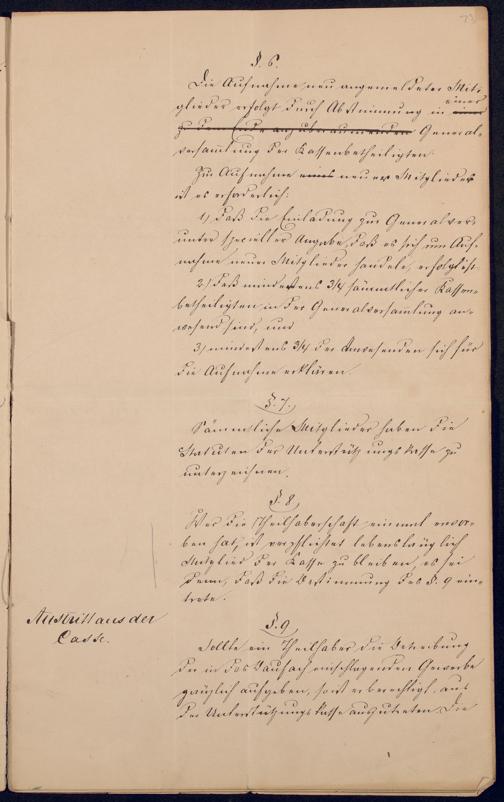 23
§. 6.
Die Aufnahme neu angemeldeter Mit-
glieder erfolgt durch Abstimmung in einer
zu dem Ende anzuberaumenden General-
versamlung der Kassenbetheiligten.
Zur Aufnahme eines neuer Mitglieder
ist es erforderlich:
1, daß die Einladung zur Generalver.
unter specieller Angabe, daß es sich um Auf-
nahme neuer Mitglieder handele, erfolgt ist.
2, daß mindestens 3/4 sämmtlicher Kassen-
betheiligten in der Generalversamlung an-
wesend sind, und
3, mindestens 3/4 der Anwesenden sich für
die Aufnahme erklären.
§. 7.
Sämmtliche Mitglieder haben die
Statuten der Unterstützungskasse zu
unterzeichnen.
§. 8
Wer die Theilhaberschaft einmal erwor-
ben hat, ist verpflichtet lebenslänglich
Mitglied der Kasse zu bleiben, es sei
denn, daß die Bestimmung des §. 9 ein-
trete.
Austritt aus der
Casse.
§. 9
Sollte ein Theilhaber die Betreibung
der in das Baufach einschlagenden Gewerbe
gänzlich aufgeben, so ist er berechtigt, aus
der Unterstützungskasse auszutreten. Die